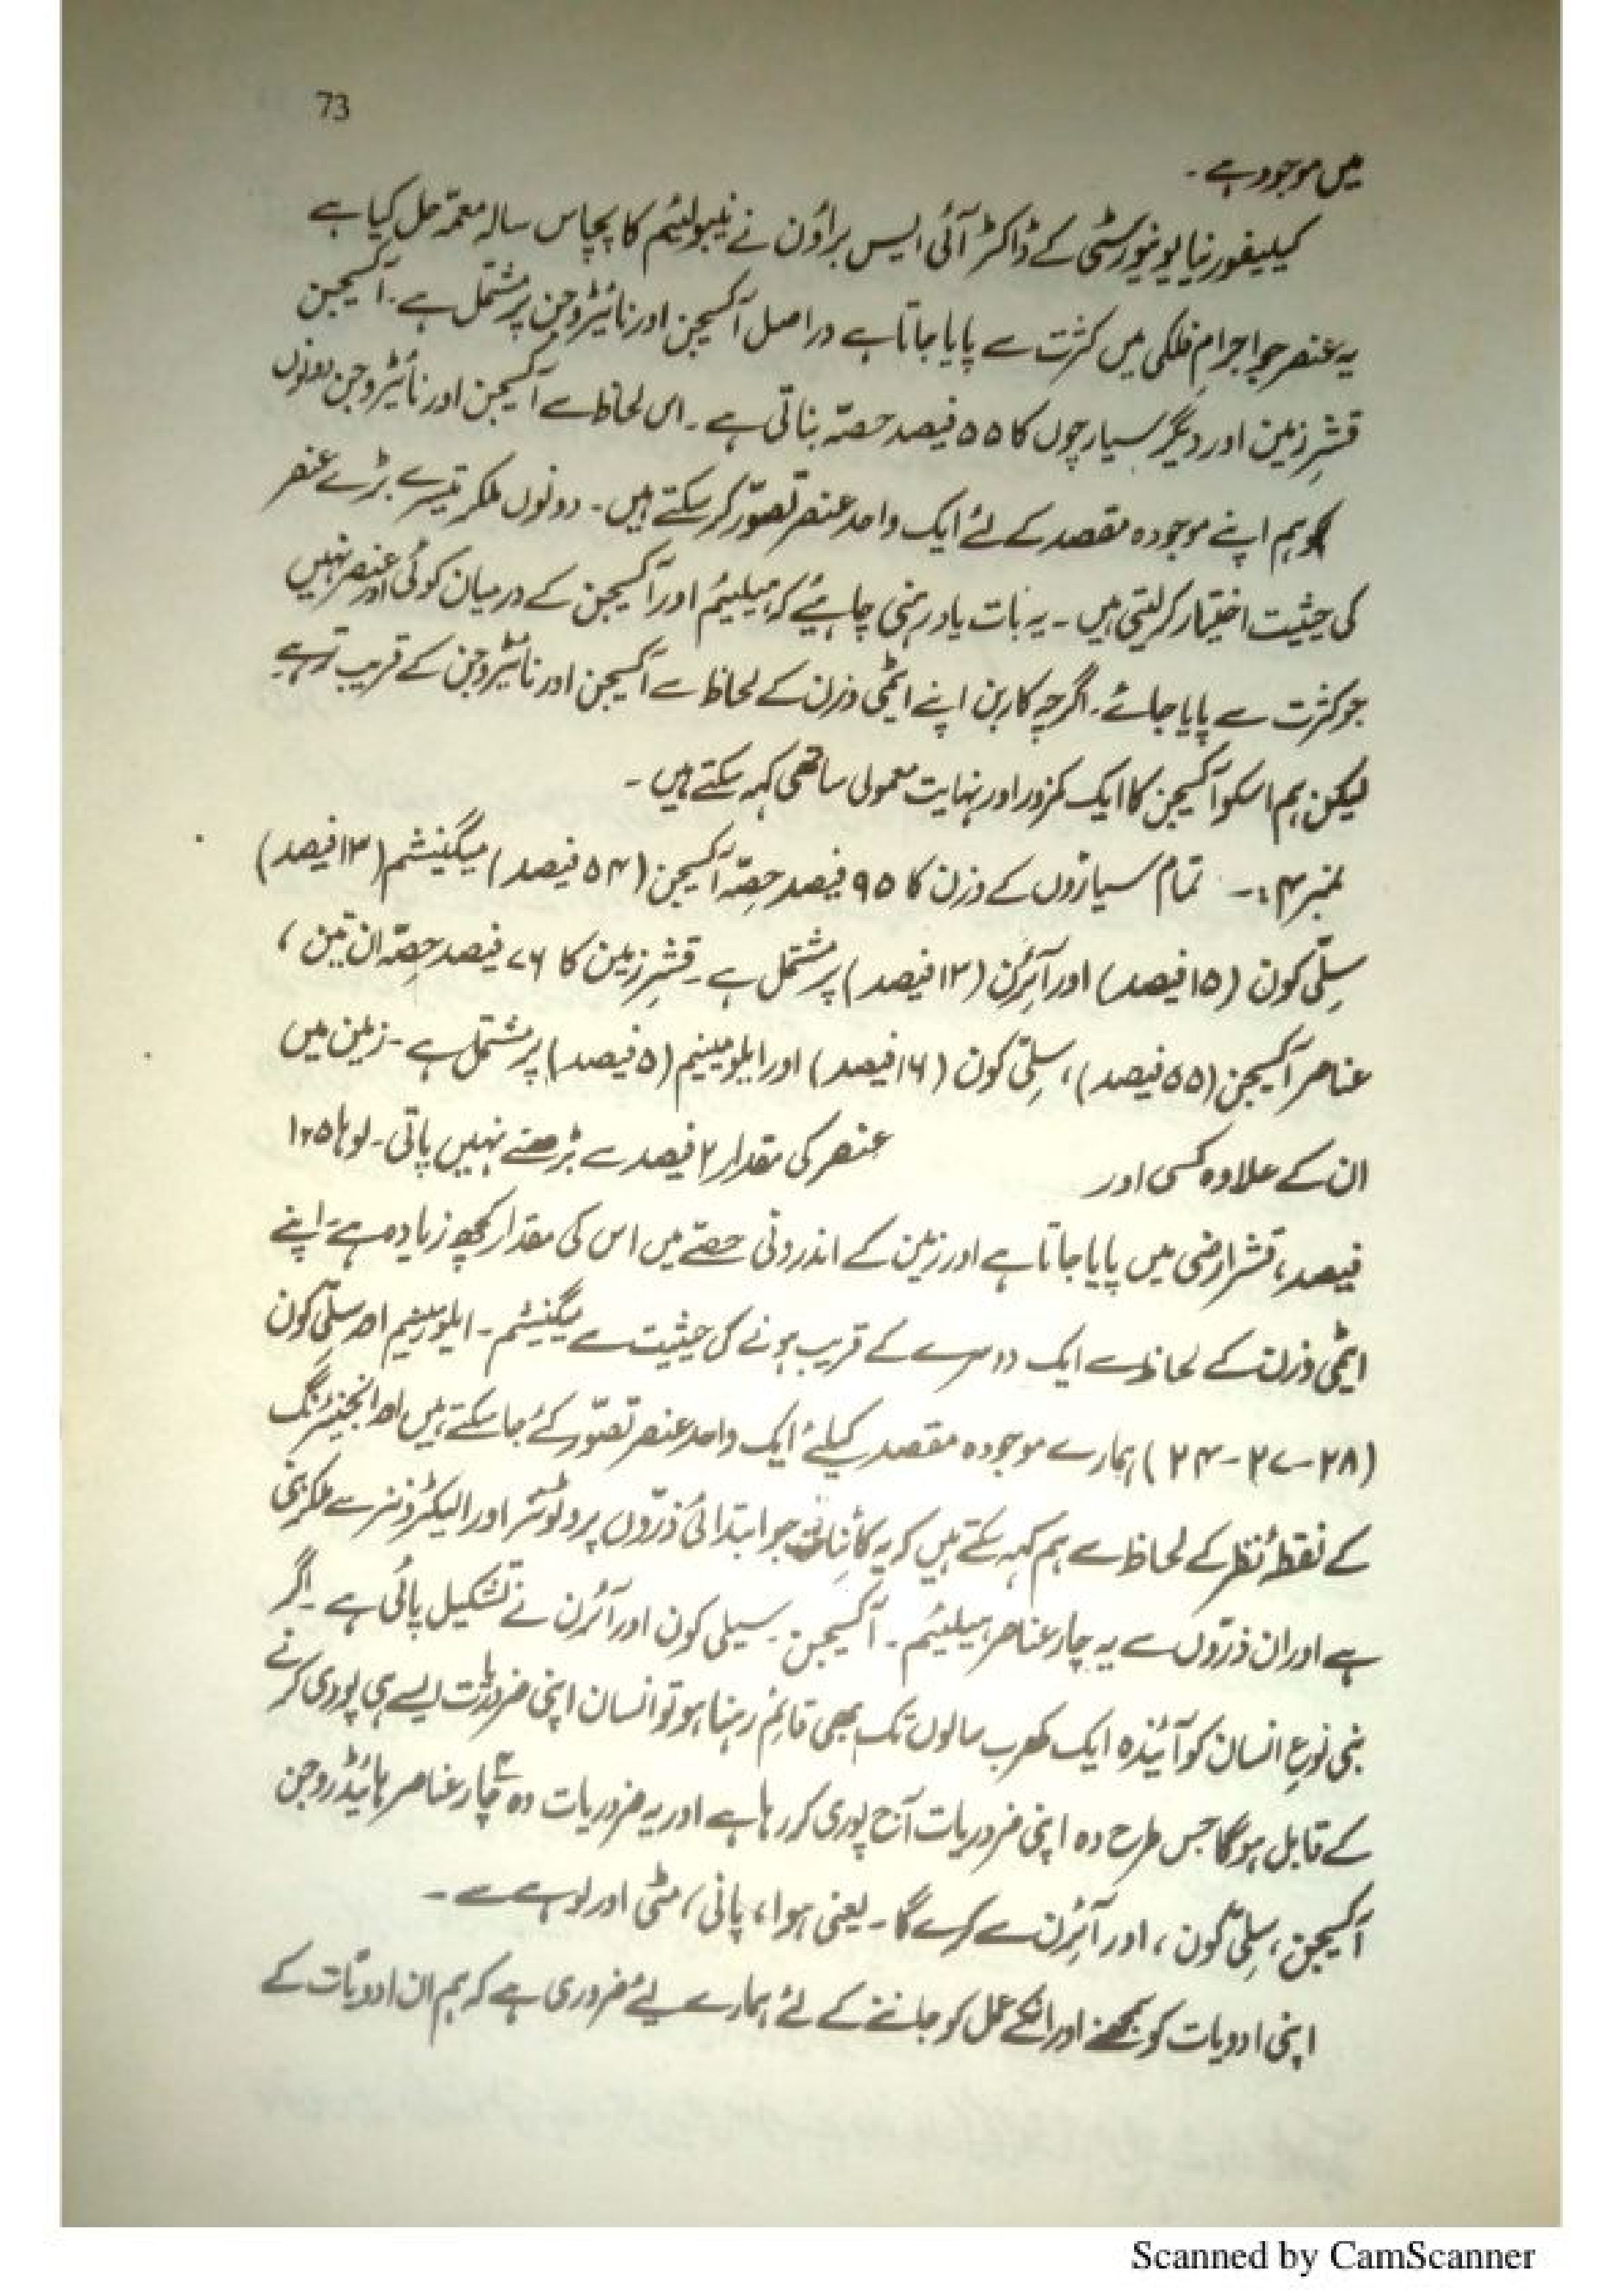 73
میں موجود ہے ۔
کیلیفورنیا یونیورسٹی کے ڈاکٹر آئی ایس براؤن نے نیبولیئم کا پچاس سالہ معمّہ حل کیا ہے
یہ عنصر جو اجرامِ فلکی میں کثرت سے پایا جاتا ہے دراصل آکسیجن اور نائیٹروجن پر مشتمل ہے ۔ آکسیجن
قشرِ زمین اور دیگر سیارچوں کا ۵۵ فیصد حصّہ بناتی ہے ۔ اس لحاظ سے آکسیجن اور نائیٹروجن دونوں
کو ہم اپنے موجودہ مقصد کے لئے ایک واحد عنصر تصوّر کر سکتے ہیں ۔ دونوں ملکر تیسرے بڑے عنصر
کی حیثیت اختیار کر لیتی ہیں ۔ یہ بات یاد رہنی چاہیئے کہ ہیلیئم اور آکسیجن کے درمیان کوئی اور عنصر نہیں
جو کثرت سے پایا جائے ۔ اگرچہ کاربن اپنے ایٹمی وزن کے لحاظ سے آکسیجن اور نائیٹروجن کے قریب تر ہے
لیکن ہم اسکو آکسیجن کا ایک کمزور اور نہایت معمولی ساتھی کہہ سکتے ہیں ۔
نمبر ۴ :۔ تمام سیاروں کے وزن کا ۹۵ فیصد حِصّہ آکسیجن (۵۴ فیصد) میگنیشم (۱۳ فیصد)
سِلّی کون (۱۵ فیصد) اور آئرن (۱۳ فیصد) پر مشتمل ہے ۔ قشرِ زمین کا ۷۶ فیصد حِصّہ ان تین ،
عناصر آکسیجن (۵۵ فیصد) ، سِلّی کون (۱۶ فیصد) اور ایلومینیم (۵ فیصد) پر مشتمل ہے ۔ زمین میں
ان کے علاوہ کسی اور عنصر کی مقدار ۲ فیصد سے بڑھنے نہیں پاتی ۔ لوہا ۱۲۵
فیصد ، قشر ارضی میں پایا جاتا ہے اور زمین کے اندرونی حصّے میں اس کی مقدار کچھ زیادہ ہے ۔ اپنے
ایٹمی وزن کے لحاظ سے ایک دوسرے کے قریب ہونے کی حیثیت سے میگنیشم ۔ ایلومینیم اور سِلّی کون
(۲۴ - ۲۷ - ۲۸) ہمارے موجودہ مقصد کیلئے ایک واحد عنصر تصوّر کئے جا سکتے ہیں اور انجنیئرنگ
کے نقطۂ نظر کے لحاظ سے ہم کہہ سکتے ہیں کہ یہ کائنات جو ابتدائی ذرّوں پروٹونز اور الیکٹرونز سے ملکر بنی
ہے اور ان ذرّوں سے یہ چار عناصر ہیلیئم ۔ آکسیجن ۔ سیلی کون اور آئرن نے تشکیل پائی ہے ۔ اگر
بنی نوعِ انسان کو آئندہ ایک کھرب سالوں تک بھی قائم رہنا ہو تو انسان اپنی ضروریات ایسے ہی پوری کرنے
کے قابل ہو گا جس طرح وہ اپنی ضروریات آج پوری کر رہا ہے اور یہ ضروریات وہ چار عناصر ہائیڈروجن
آکسیجن ، سِلّی کون ، اور آئرن سے کرے گا ۔ یعنی ہوا ، پانی ، مٹی اور لوہے سے ۔
اپنی ادویات کو سمجھنے اور انکے عمل کو جاننے کے لئے ہمارے لیئے ضروری ہے کہ ہم ان ادویات کے
Scanned by CamScanner